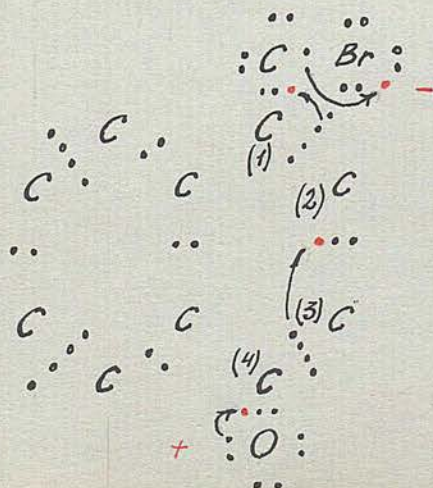 C Br
C
(1)
C
C
C
(2) C
C
C
(3) C
C
(4) C
+ O
−